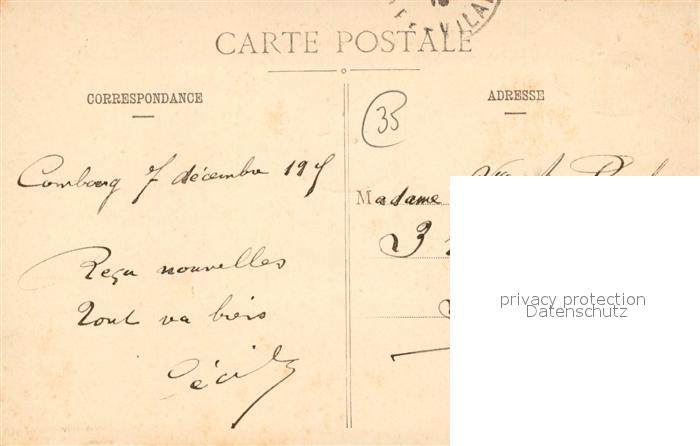 CARTE POSTALE
CORRESPONDANCE
ADRESSE
35
Combourg 7 décembre
Madame
3
Reçu nouvelles
Tout va bien
Cécile
privacy protection
Datenschutz